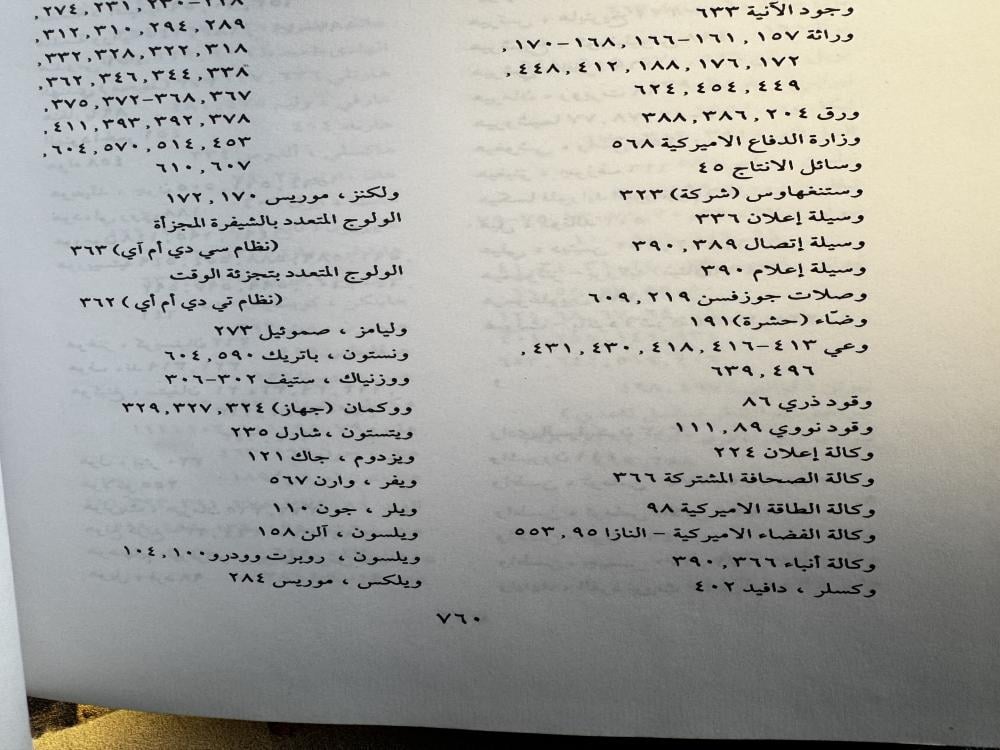 وجود الآنية ٦٣٣
وراثة ١٥٧, ١٦١-١٦٦, ١٦٨-١٧٠,
١٧٢, ١٧٦, ١٨٨, ٤١٢, ٤٤٨,
٤٤٩, ٤٥٤, ٦٢٤
ورق ٢٠٤, ٣٨٦, ٣٨٨
وزارة الدفاع الاميركية ٥٦٨
وسائل الانتاج ٤٥
وستنغهاوس (شركة) ٣٢٣
وسيلة إعلان ٣٣٦
وسيلة إتصال ٣٨٩, ٣٩٠
وسيلة إعلام ٣٩٠
وصلات جوزفسن ٢١٩, ٦٠٩
وضّاء (حشرة) ١٩١
وعي ٤١٣-٤١٦, ٤١٨, ٤٣٠, ٤٣١,
٤٩٦, ٦٣٩
وقود ذري ٨٦
وقود نووي ٨٩, ١١١
وكالة إعلان ٢٢٤
وكالة الصحافة المشتركة ٣٦٦
وكالة الطاقة الاميركية ٩٨
وكالة الفضاء الاميركية - النازا ٩٥, ٥٥٣
وكالة أنباء ٣٦٦, ٣٩٠
وكسلر ، دافيد ٤٠٢
٢١٨-٢٣٠, ٢٣١, ٢٧٤,
٢٨٩, ٢٩٤, ٣١٠, ٣١٢,
٣١٨, ٣٢٢, ٣٢٨, ٣٣٢,
٣٣٨, ٣٤٤, ٣٤٦, ٣٦٢,
٣٦٧, ٣٦٨-٣٧٢, ٣٧٥,
٣٧٨, ٣٩٢, ٣٩٣, ٤١١,
٤٥٣, ٥١٤, ٥٧٠, ٦٠٤,
٦٠٧, ٦١٠
ولكنز، موريس ١٧٠, ١٧٢
الولوج المتعدد بالشيفرة المجزأة
(نظام سي دي أم آي) ٣٦٣
الولوج المتعدد بتجزئة الوقت
(نظام تي دي أم أي ) ٣٦٢
وليامز ، صموئيل ٢٧٣
ونستون ، باتريك ٥٩٠, ٦٠٤
ووزنياك ، ستيف ٣٠٢-٣٠٦
ووكمان (جهاز) ٣٢٤, ٣٢٧, ٣٢٩
ويتستون ، شارل ٢٣٥
ويزدوم ، جاك ١٢١
ويفر ، وارن ٥٦٧
ويلر ، جون ١١٠
ويلسون ، آلن ١٥٨
ويلسون ، روبرت وودرو ١٠٠, ١٠٤
ويلكس ، موريس ٢٨٤
٧٦٠